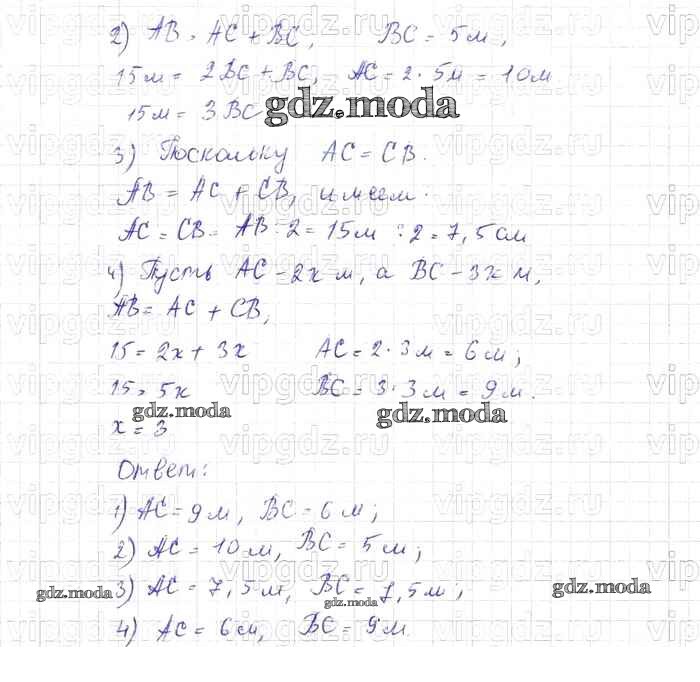 2) AB = AC + BC, BC = 5м,
15м = 2BC + BC, AC = 2 · 5м = 10м
15м = 3BC
gdz.moda
3) Поскольку AC = CB.
AB = AC + CB, имеем.
AC = CB = AB : 2 = 15м : 2 = 7,5см
4) Пусть AC - 2x м, а BC - 3x м,
AB = AC + CB,
15 = 2x + 3x AC = 2 · 3м = 6м;
15 = 5x BC = 3 · 3м = 9м.
gdz.moda gdz.moda
x = 3
Ответ:
1) AC = 9м, BC = 6м;
2) AC = 10м, BC = 5м;
3) AC = 7,5м, BC = 7,5м;
gdz.moda gdz.moda gdz.moda
4) AC = 6м, BC = 9м.
vipgdz.ru